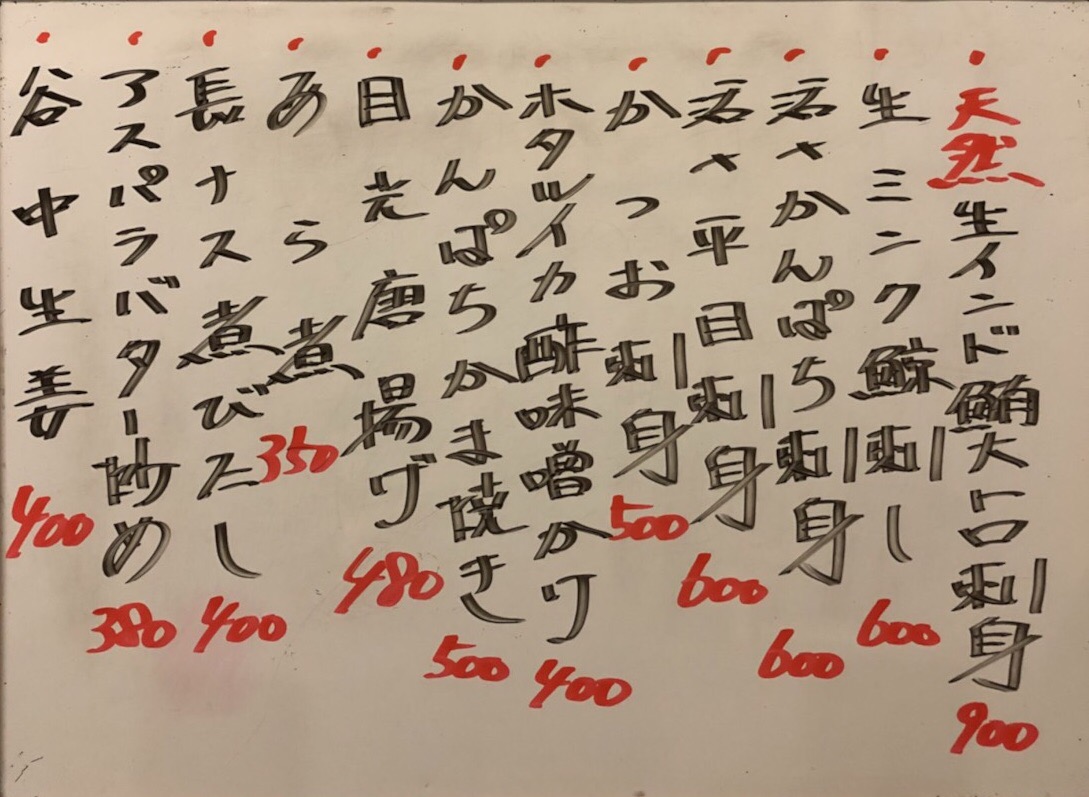 天然生インド鮪大トロ刺身 900
生ミンク鯨刺し 600
活〆かんぱち刺身 600
活〆平目刺身 600
かつお刺身 500
ホタルイカ酢味噌かけ 400
かんぱちかま焼き 500
目光唐揚げ 480
あら煮 350
長ナス煮びたし 400
アスパラバター炒め 380
谷中生姜 400